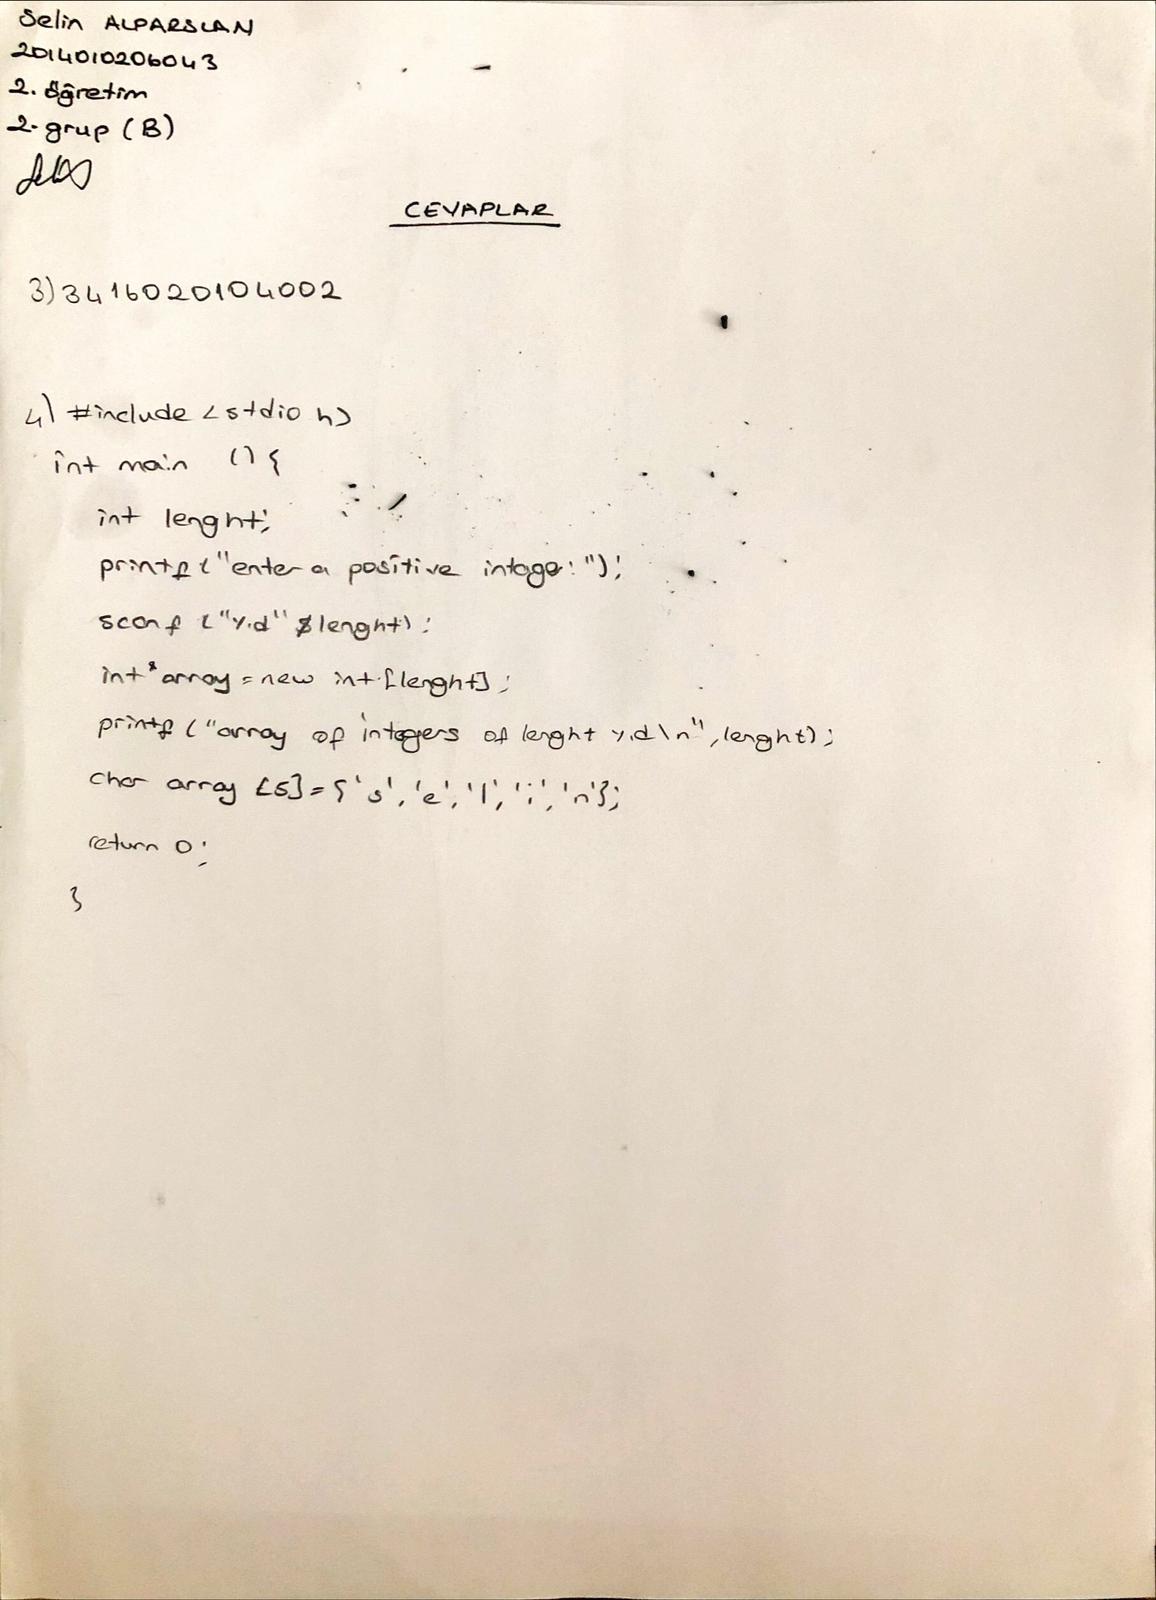 Selin ALPARSLAN
2014010206043
2. öğretim
2. grup (B)
CEVAPLAR
3) 3416020104002
4) #include <stdio h>
int main () {
int lenght;
printf ("enter a positive intege: ");
scanf ("%d" &lenght);
int *array = new int [lenght];
printf ("array of integers of lenght %d\n", lenght);
char array [5] = {'s', 'e', 'l', 'i', 'n'};
return 0;
}